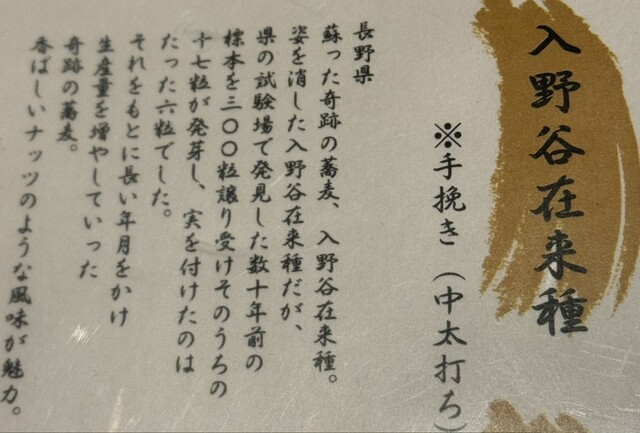 入野谷在来種
※手挽き（中太打ち）
長野県
蘇った奇跡の蕎麦、入野谷在来種。
姿を消した入野谷在来種だが、
県の試験場で発見した数十年前の
標本を三〇〇粒譲り受けそのうちの
十七粒が発芽し、実を付けたのは
たった六粒でした。
それをもとに長い年月をかけ
生産量を増やしていった
奇跡の蕎麦。
香ばしいナッツのような風味が魅力。